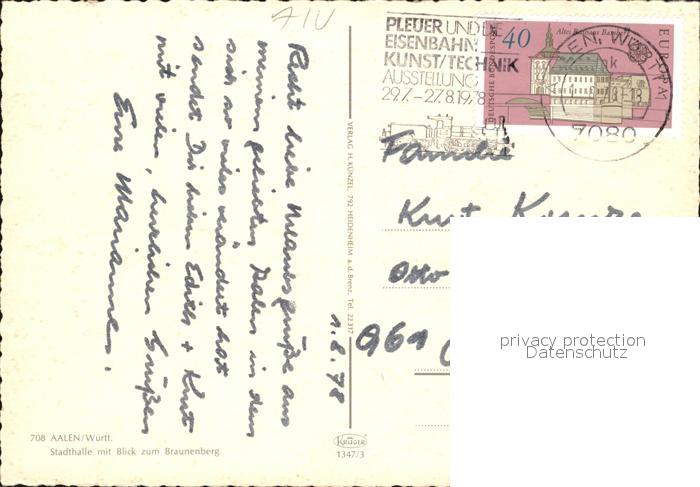 AIU
PLEUER UND DIE
EISENBAHN
KUNST/TECHNIK
AUSSTELLUNG
29.7.-27.8.1978
DEUTSCHE BUNDESPOST
40
Altes Rathaus Bamberg
EUROPA
AALEN, WÜRTT
7080
Recht liebe Urlaubsgrüße aus
meinem geliebten Aalen in dem
sich so vieles verändert hat
sendet Dir lieben Edith + Kurt
mit vielen, herzlichen Grüßen
Eure Marianne.
1.8.78
VERLAG H. KÜNZEL, 792 HEIDENHEIM a. d. Brenz, Tel. 22317
Familie
Kurt
Otto
961
privacy protection
Datenschutz
708 AALEN/Württ.
Stadthalle mit Blick zum Braunenberg
KRÜGER
1347/3